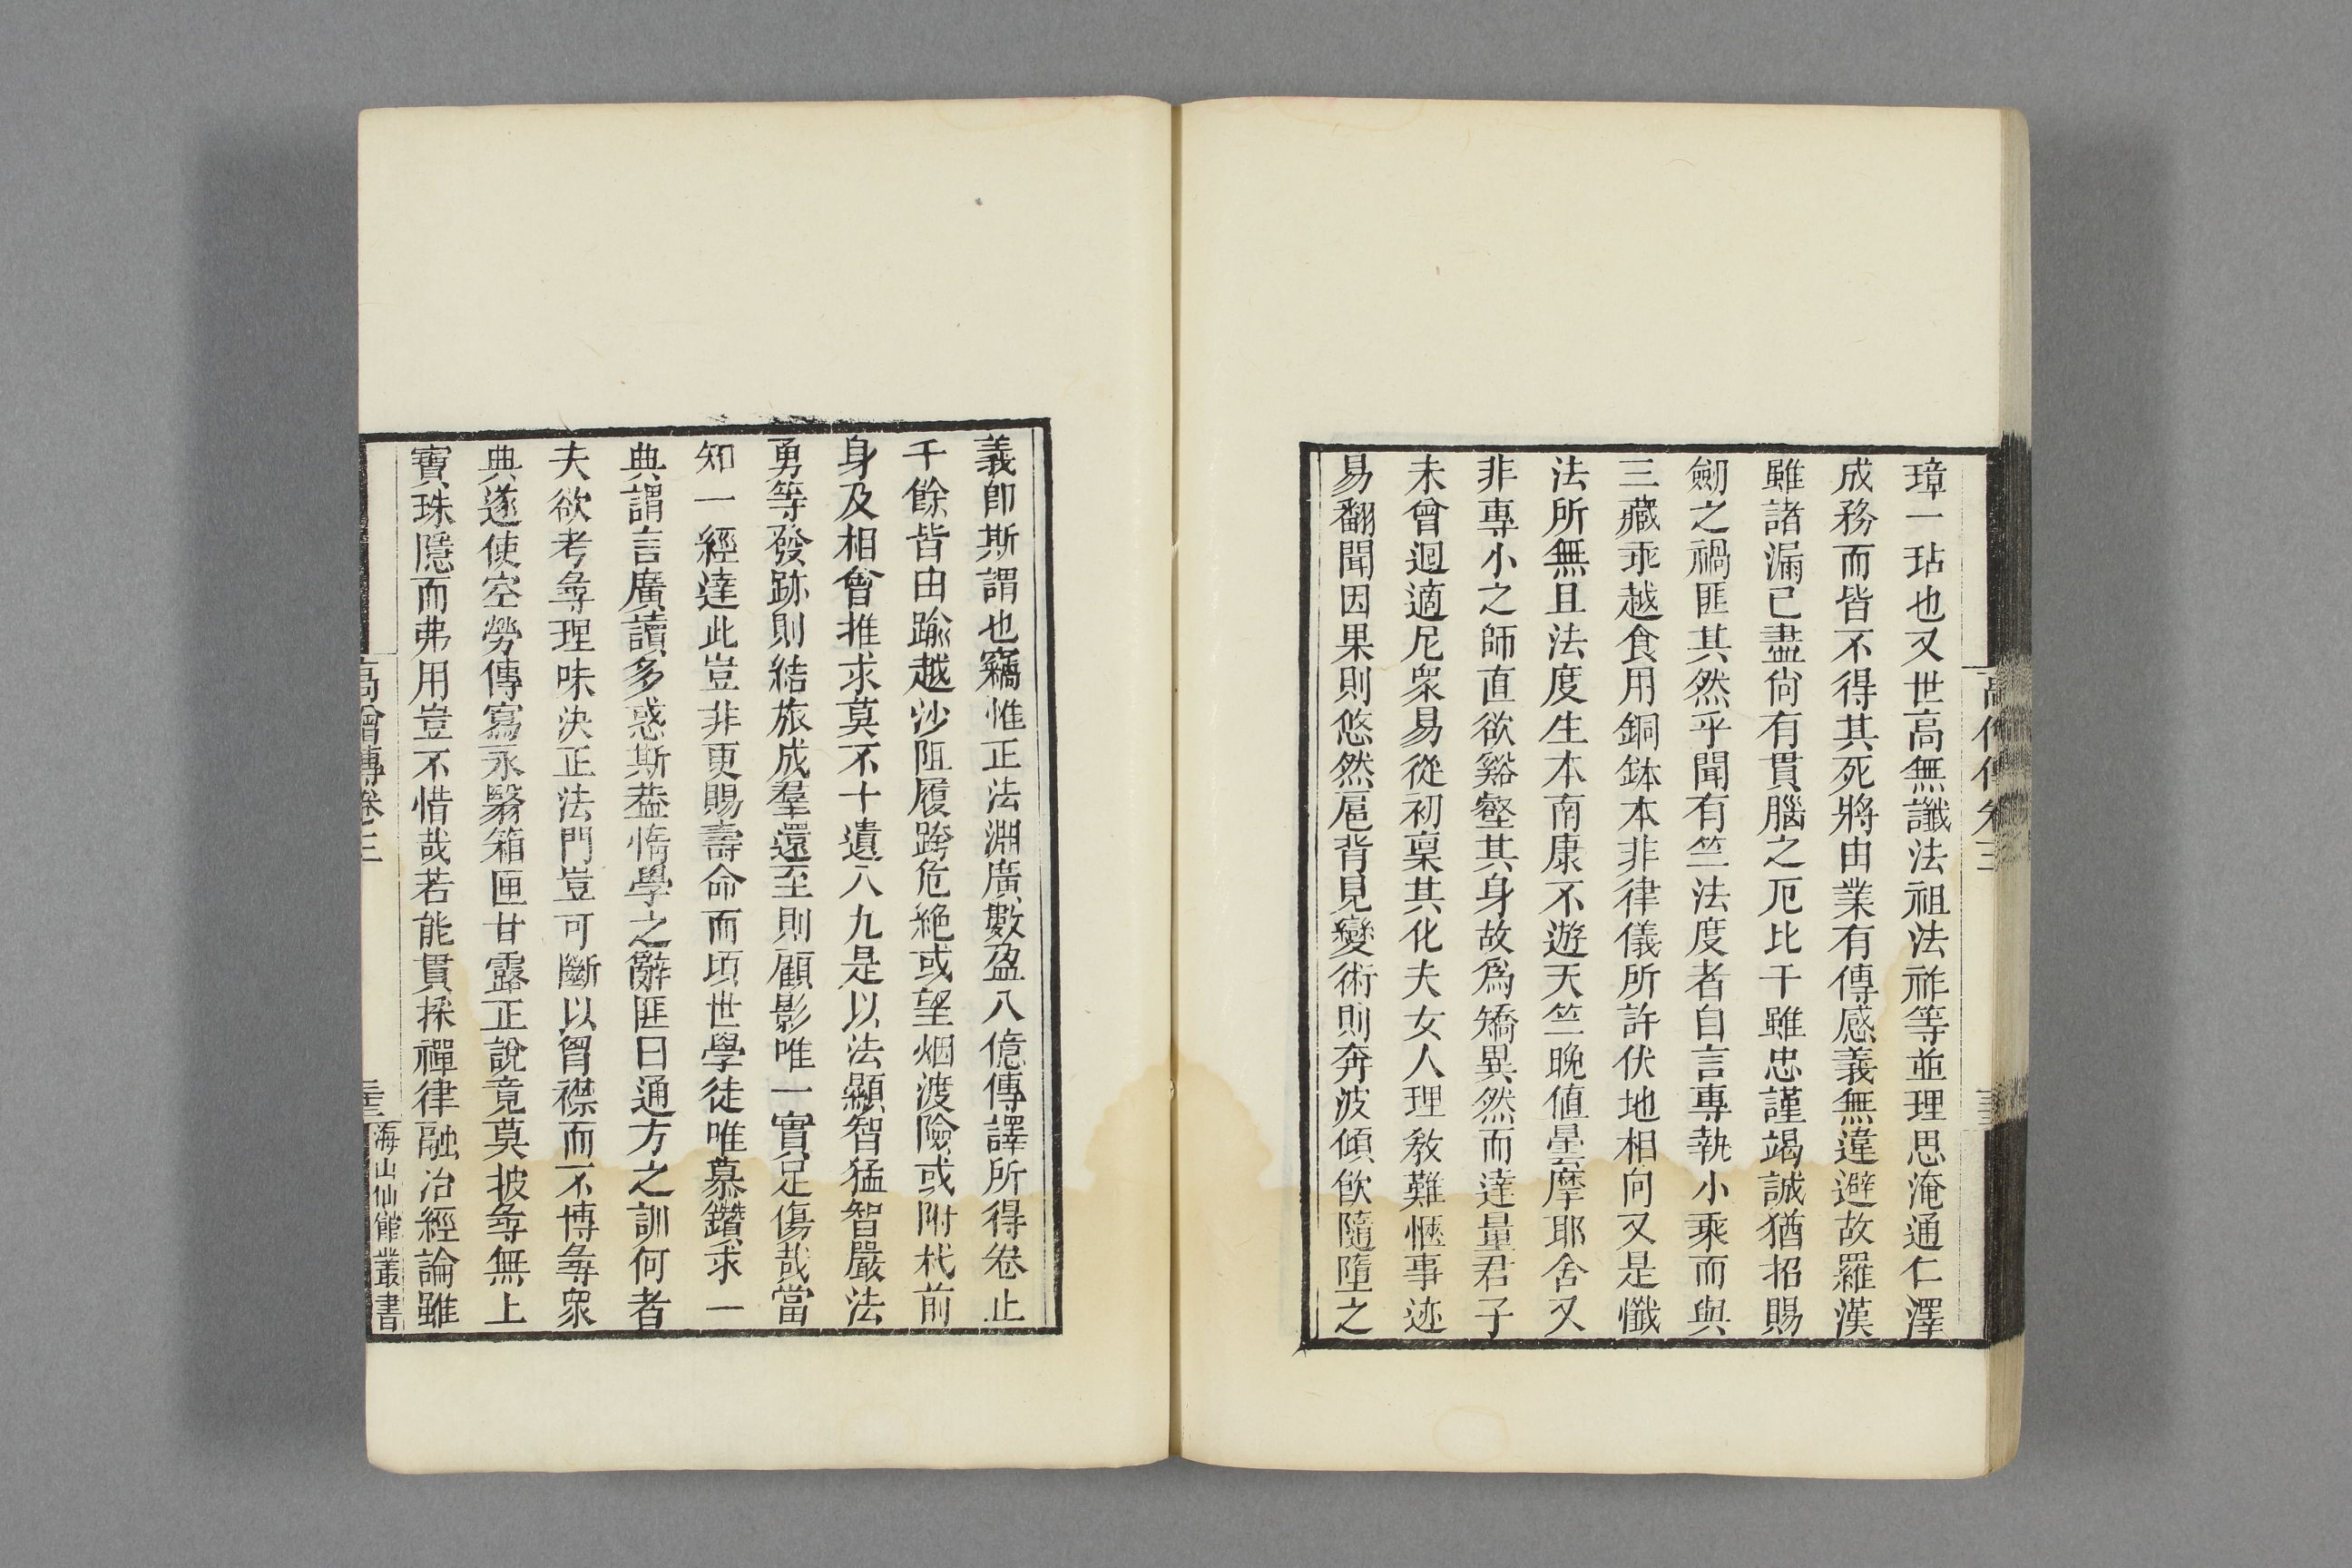 璋一玷也又世高無讖法祖法祚等並理思淹通仁澤
成務而皆不得其死將由業有傳感義無違避故羅漢
雖諸漏已盡尙有貫腦之厄比干雖忠謹竭誠猶招賜
劒之禍匪其然乎聞有竺法度者自言專執小乘而與
三藏乖越食用銅鉢本非律儀所許伏地相向又是懺
法所無且法度生本南康不遊天竺晚値曇摩耶舍又
非專小之師直欲谿壑其身故爲矯異然而達量君子
未曾迴適尼衆易從初稟其化夫女人理敎難愜事迹
易翻聞因果則悠然扈背見變術則奔波傾飮隨墮之
義卽斯謂也竊惟正法淵廣數盈八億傳譯所得卷止
千餘皆由踰越沙阻履跨危絶或望烟渡險或附杙前
身及相會推求莫不十遺八九是以法顯智猛智嚴法
勇等發跡則結旅成羣還至則顧影唯一實足傷哉當
知一經達此豈非更賜壽命而頃世學徒唯慕鑽求一
典謂言廣讀多惑斯葢惰學之辭匪曰通方之訓何者
夫欲考㝷理味決正法門豈可斷以胷襟而不博㝷衆
典遂使空勞傳寫永翳箱匣甘露正說竟莫披㝷無上
寶珠隱而弗用豈不惜哉若能貫採禪律融冶經論雖
高僧傳卷三
海山仙館叢書